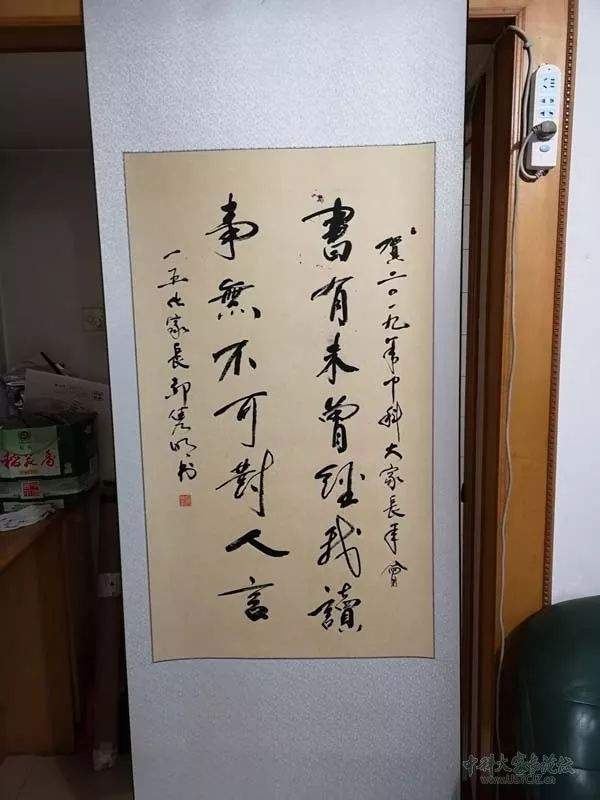 賀二〇一九年中科大家長年會
書有未曾經我讀
事無不可對人言
一五化家長郭俊明书
稻花香
中科大家长论坛
www.USTCjZ.cn